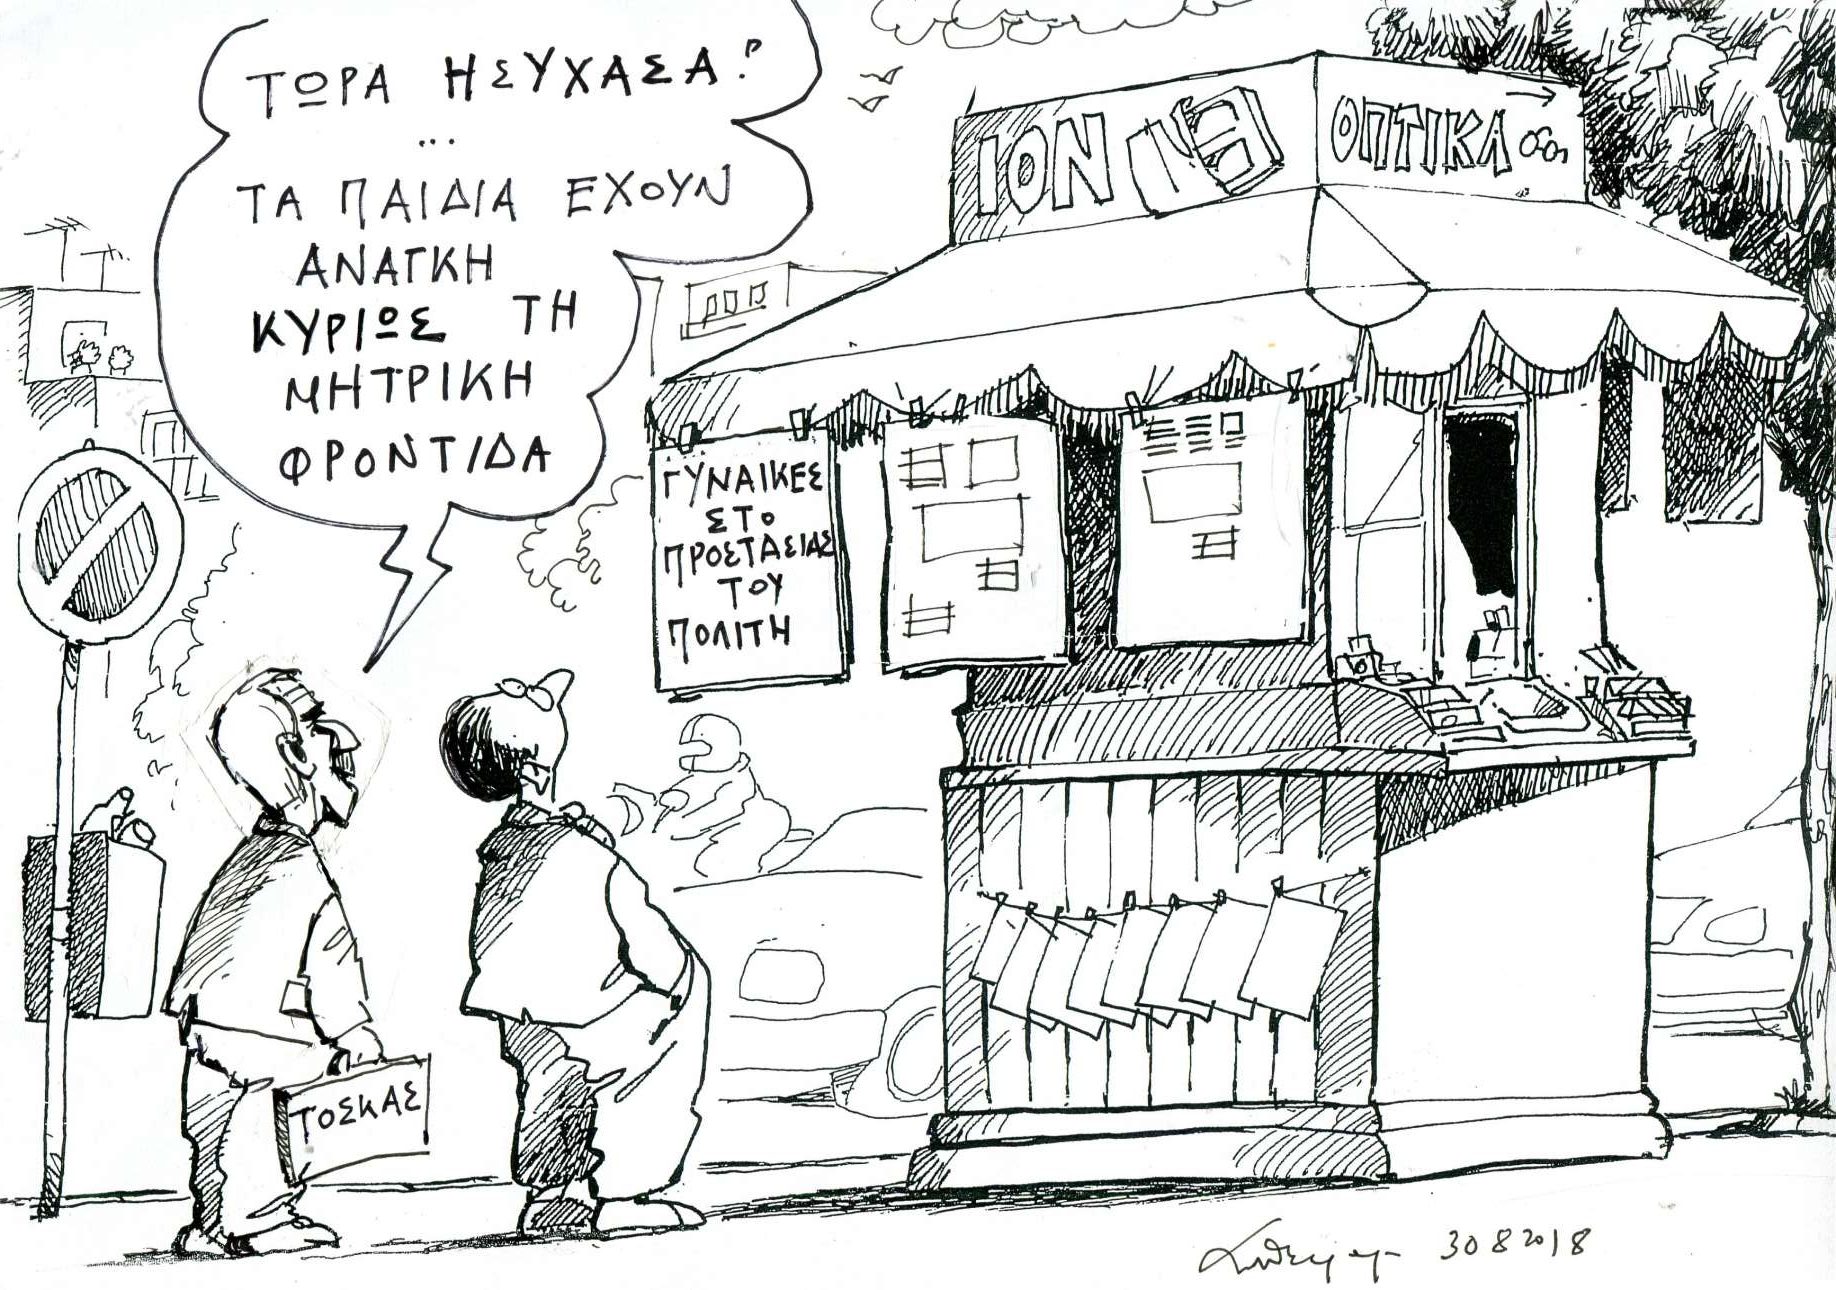 ΤΩΡΑ ΗΣΥΧΑΣΑ!
...
ΤΑ ΠΑΙΔΙΑ ΕΧΟΥΝ
ΑΝΑΓΚΗ
ΚΥΡΙΩΣ ΤΗ
ΜΗΤΡΙΚΗ
ΦΡΟΝΤΙΔΑ
ΙΟΝ
ΟΠΤΙΚΑ
ΓΥΝΑΙΚΕΣ
ΣΤΟ
ΠΡΟΣΤΑΣΙΑΣ
ΤΟΥ
ΠΟΛΙΤΗ
ΤΟΣΚΑΣ
30 8 2018